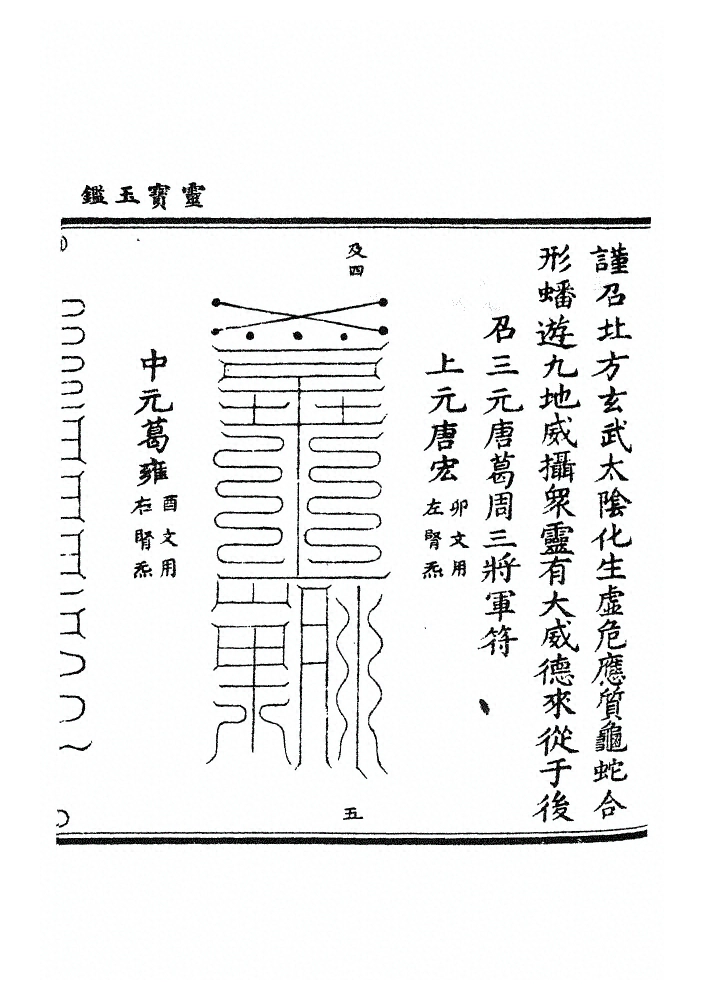 靈寶玉鑑
謹召北方玄武太陰化生虛危應質龜蛇合
形蟠遊九地威攝衆靈有大威德來從于後
召三元唐葛周三將軍符
上元唐宏
卯文用
左腎炁
及四
五
中元葛雍
酉文用
右腎炁